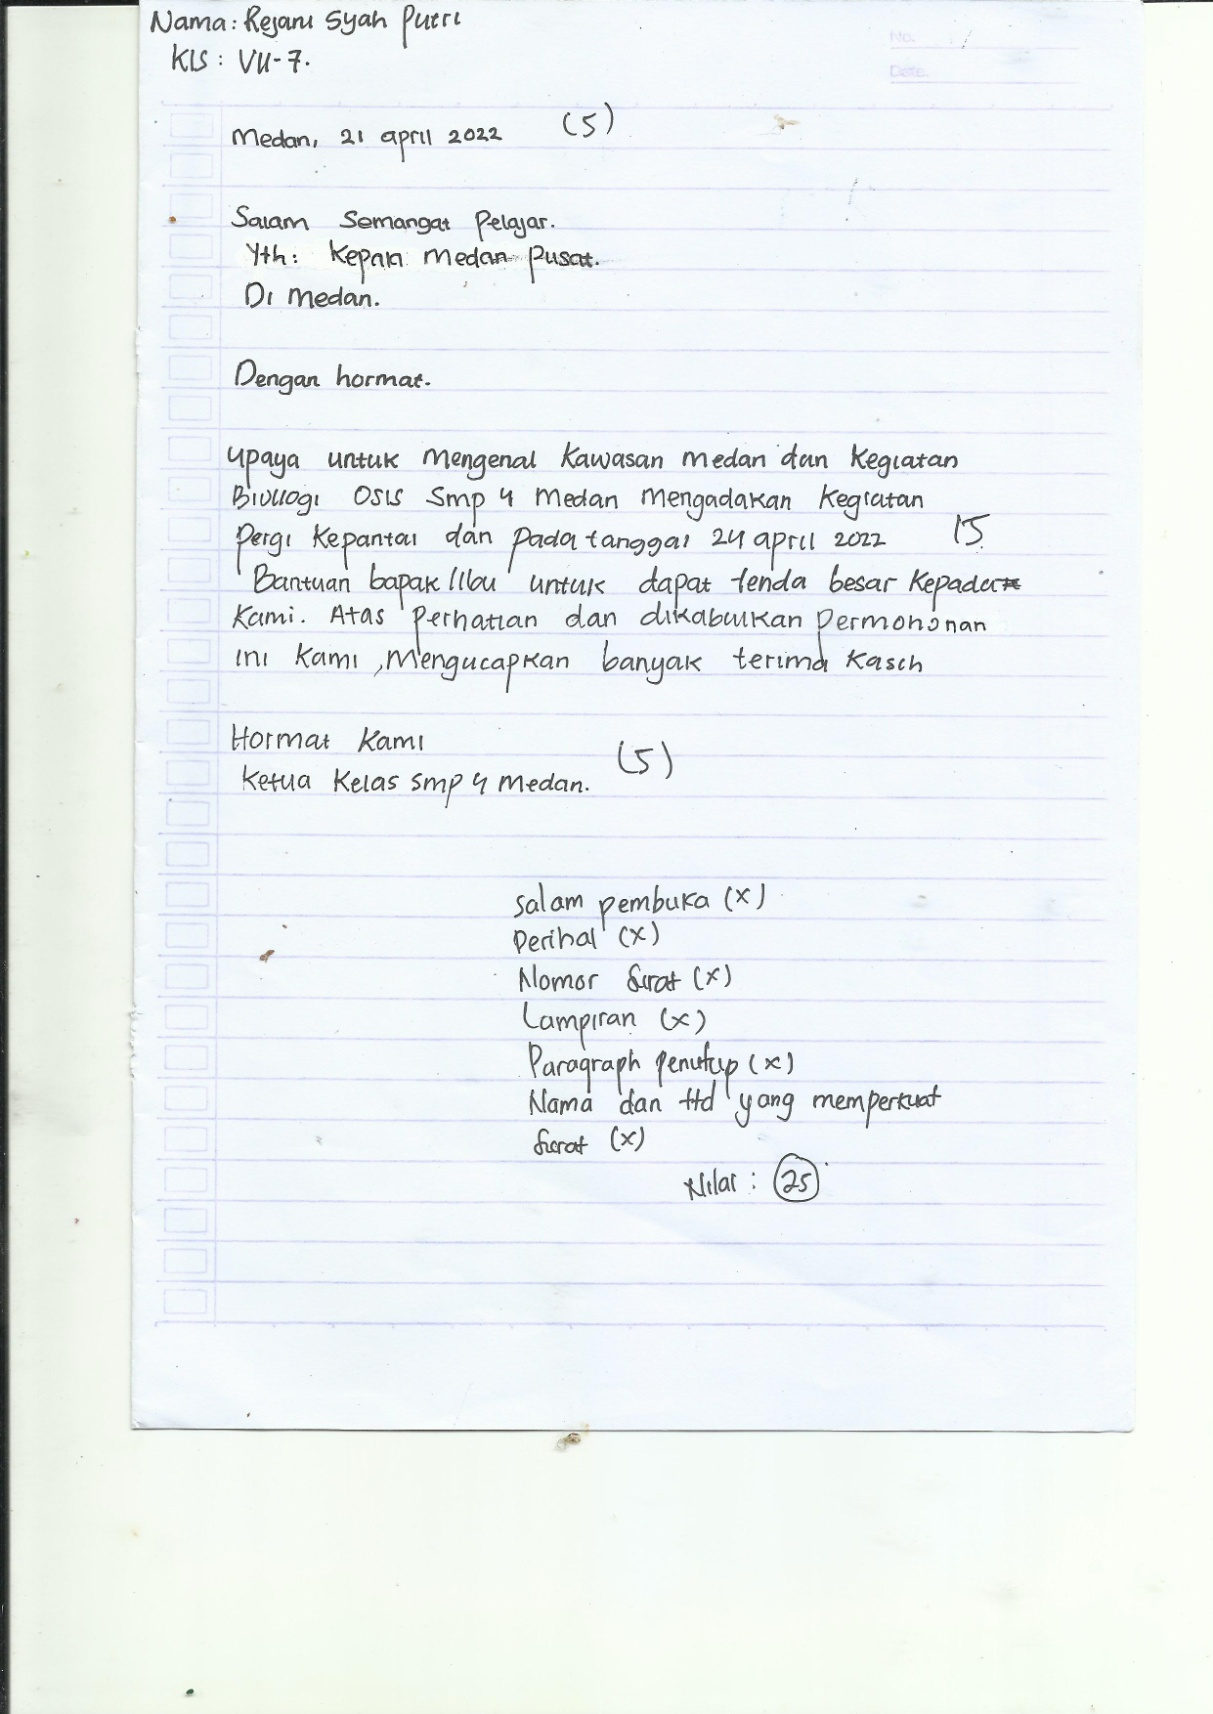 Nama: Rejani Syah Putri
Kls: VII-7.
No.
Date.
Medan, 21 april 2022 (5)
Salam Semangat Pelajar.
Yth: Medan Pusat.
Di Medan.
Dengan hormat.
upaya untuk Mengenal Kawasan Medan dan Kegiatan
OSIS Smp 4 Medan Mengadakan Kegiatan
Pergi Kepantai dan Pada tanggal 24 april 2022 15
Bantuan bapak/Ibu untuk dapat tenda besar Kepada
Kami. Atas Perhatian dan dikabulkan Permohonan
ini Kami, Mengucapkan banyak terima Kasih
Hormat Kami (5)
Ketua Kelas Smp 4 Medan.
Salam pembuka (x)
Perihal (x)
Nomor Surat (x)
Lampiran (x)
Paragraph penutup (x)
Nama dan ttd yang memperkuat
Surat (x)
Nilai : 25